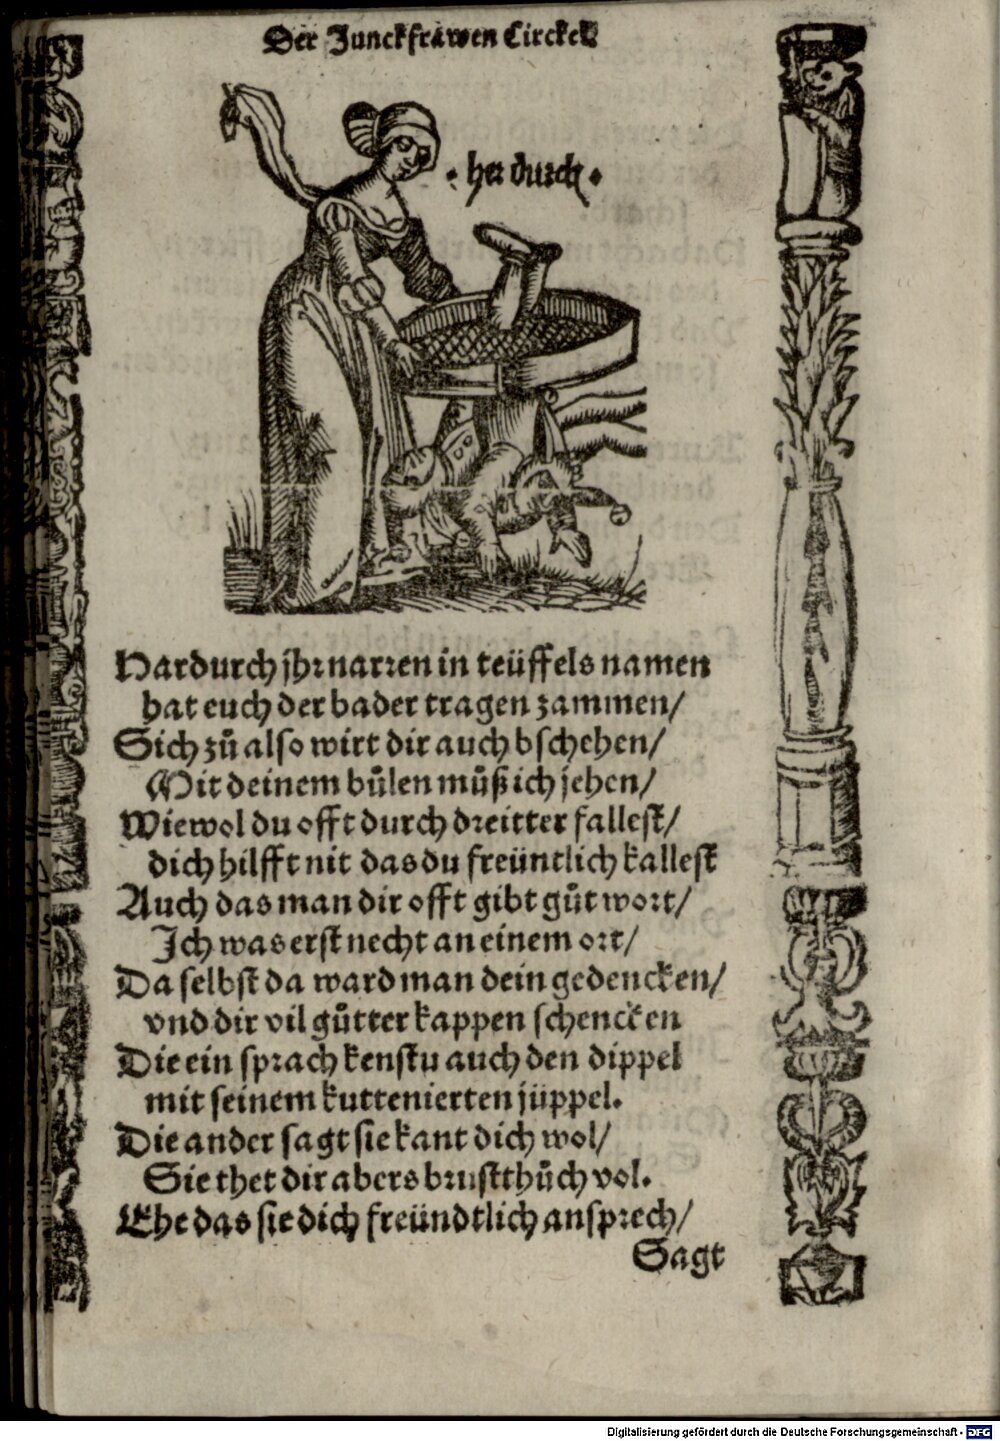 Der Junckfrawen Circkel
· her durch ·
Hardurch jhr narren in teüffels namen
hat euch der bader tragen zammen/
Sich zů also wirt dir auch bschehen/
Mit deinem bůlen můß ich jehen/
Wiewol du offt durch dreitter fallest/
dich hilfft nit das du freüntlich kallest
Auch das man dir offt gibt gůt wort/
Ich was erst necht an einem ort/
Da selbst da ward man dein gedencken/
vnd dir vil gůtter kappen schencken
Die ein sprach kenstu auch den dippel
mit seinem kuttenierten jüppel.
Die ander sagt sie kant dich wol/
Sie thet dir abers brustthůch vol.
Ehe das sie dich freündtlich ansprech/
Sagt
Digitalisierung gefördert durch die Deutsche Forschungsgemeinschaft - DFG